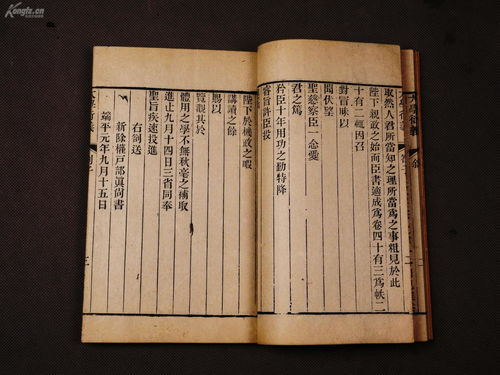 Kongfz.cn
大學衍義
取然人君所當知之理所當爲之事粗見於此
陛下親政之始而臣書適成爲卷四十有三爲帙二
十有二輒因召
對冒昧以
聞伏望
聖慈察臣一念愛
君之篤
矜臣十年用功之勤特降
睿旨許臣投
進
陛下於機政之暇
講讀之餘
賜以
覽觀其於
體用之學不無秋毫之補取
進止九月十四日三省同奉
聖旨疾速投進
右劄送
新除權戶部眞尚書
端平元年九月十五日
三